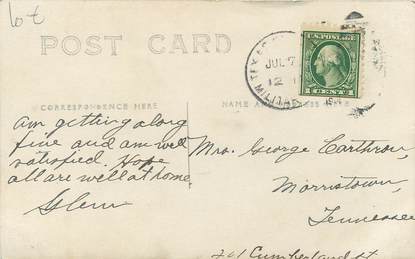 lot
POST CARD
U.S. POSTAGE
1 CENT 1
JUL 7
12
CORRESPONDENCE HERE
NAME AND ADDRESS HERE
Am getting along
fine and am well
satisfied. Hope
all are well at home.
Glenn
Mrs. George Carthron,
Morristown,
Tennessee
Cumberland St.